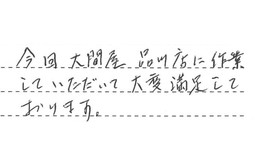 今回 大間屋 品川店に作業
していただいて大変満足して
おります。